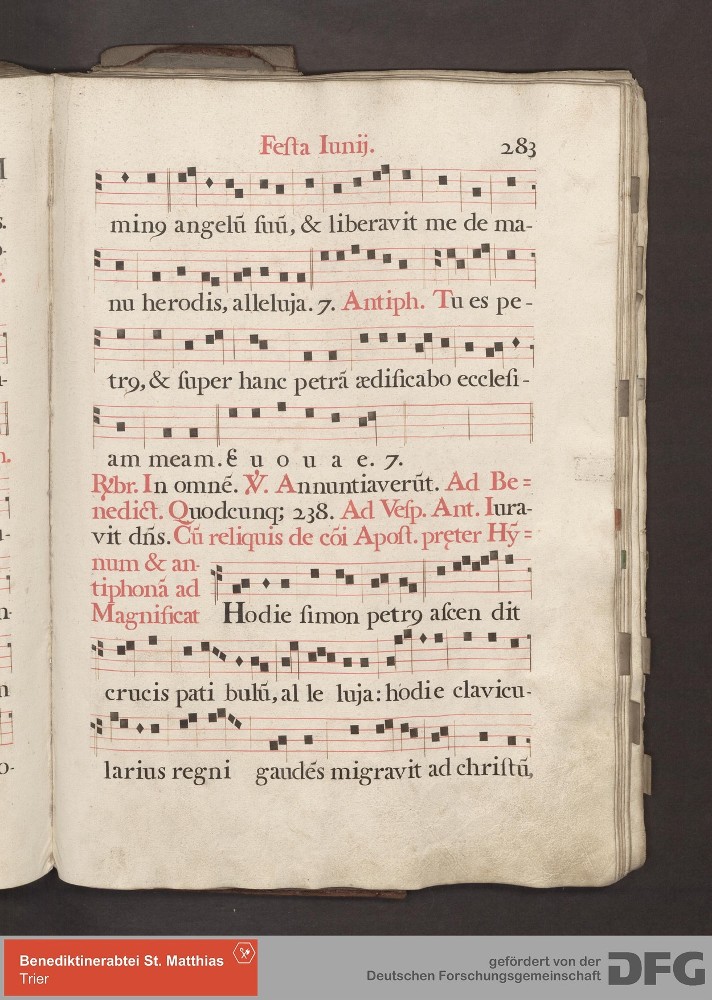 Feſta Iunij. 283
min9 angelū ſuū, & liberavit me de ma-
nu herodis, alleluja. 7. Antiph. Tu es pe-
tr9, & ſuper hanc petrā ædificabo eccleſi-
am meam. E u o u a e. 7.
℟br. In omnē. ℣. Annuntiaverūt. Ad Be=
nedict. Quodcunq; 238. Ad Veſp. Ant. Iura-
vit dn̄s. Cū reliquis de cōi Apoſt. pręter Hȳ=
num & an-
tiphonā ad
Magnificat Hodie ſimon petr9 aſcen dit
crucis pati bulū, al le luja: hodie clavicu-
larius regni gaudēs migravit ad chriſtū,
Benediktinerabtei St. Matthias
Trier
gefördert von der
Deutschen Forschungsgemeinschaft DFG